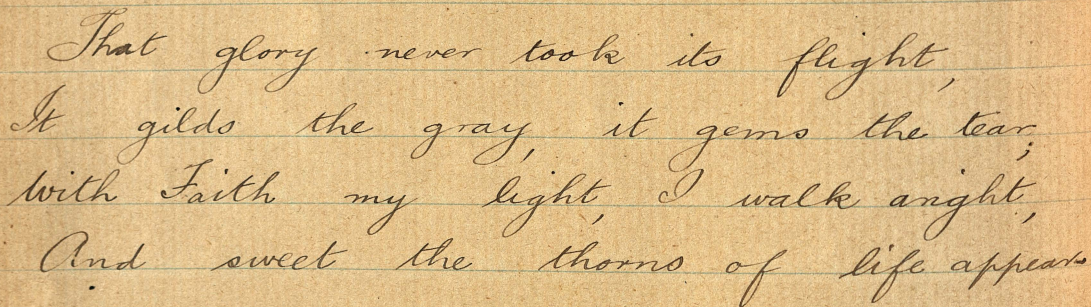 That glory never took its flight,
It gilds the gray, it gems the tear;
With Faith my light, I walk aright,
And sweet the thorns of life appear